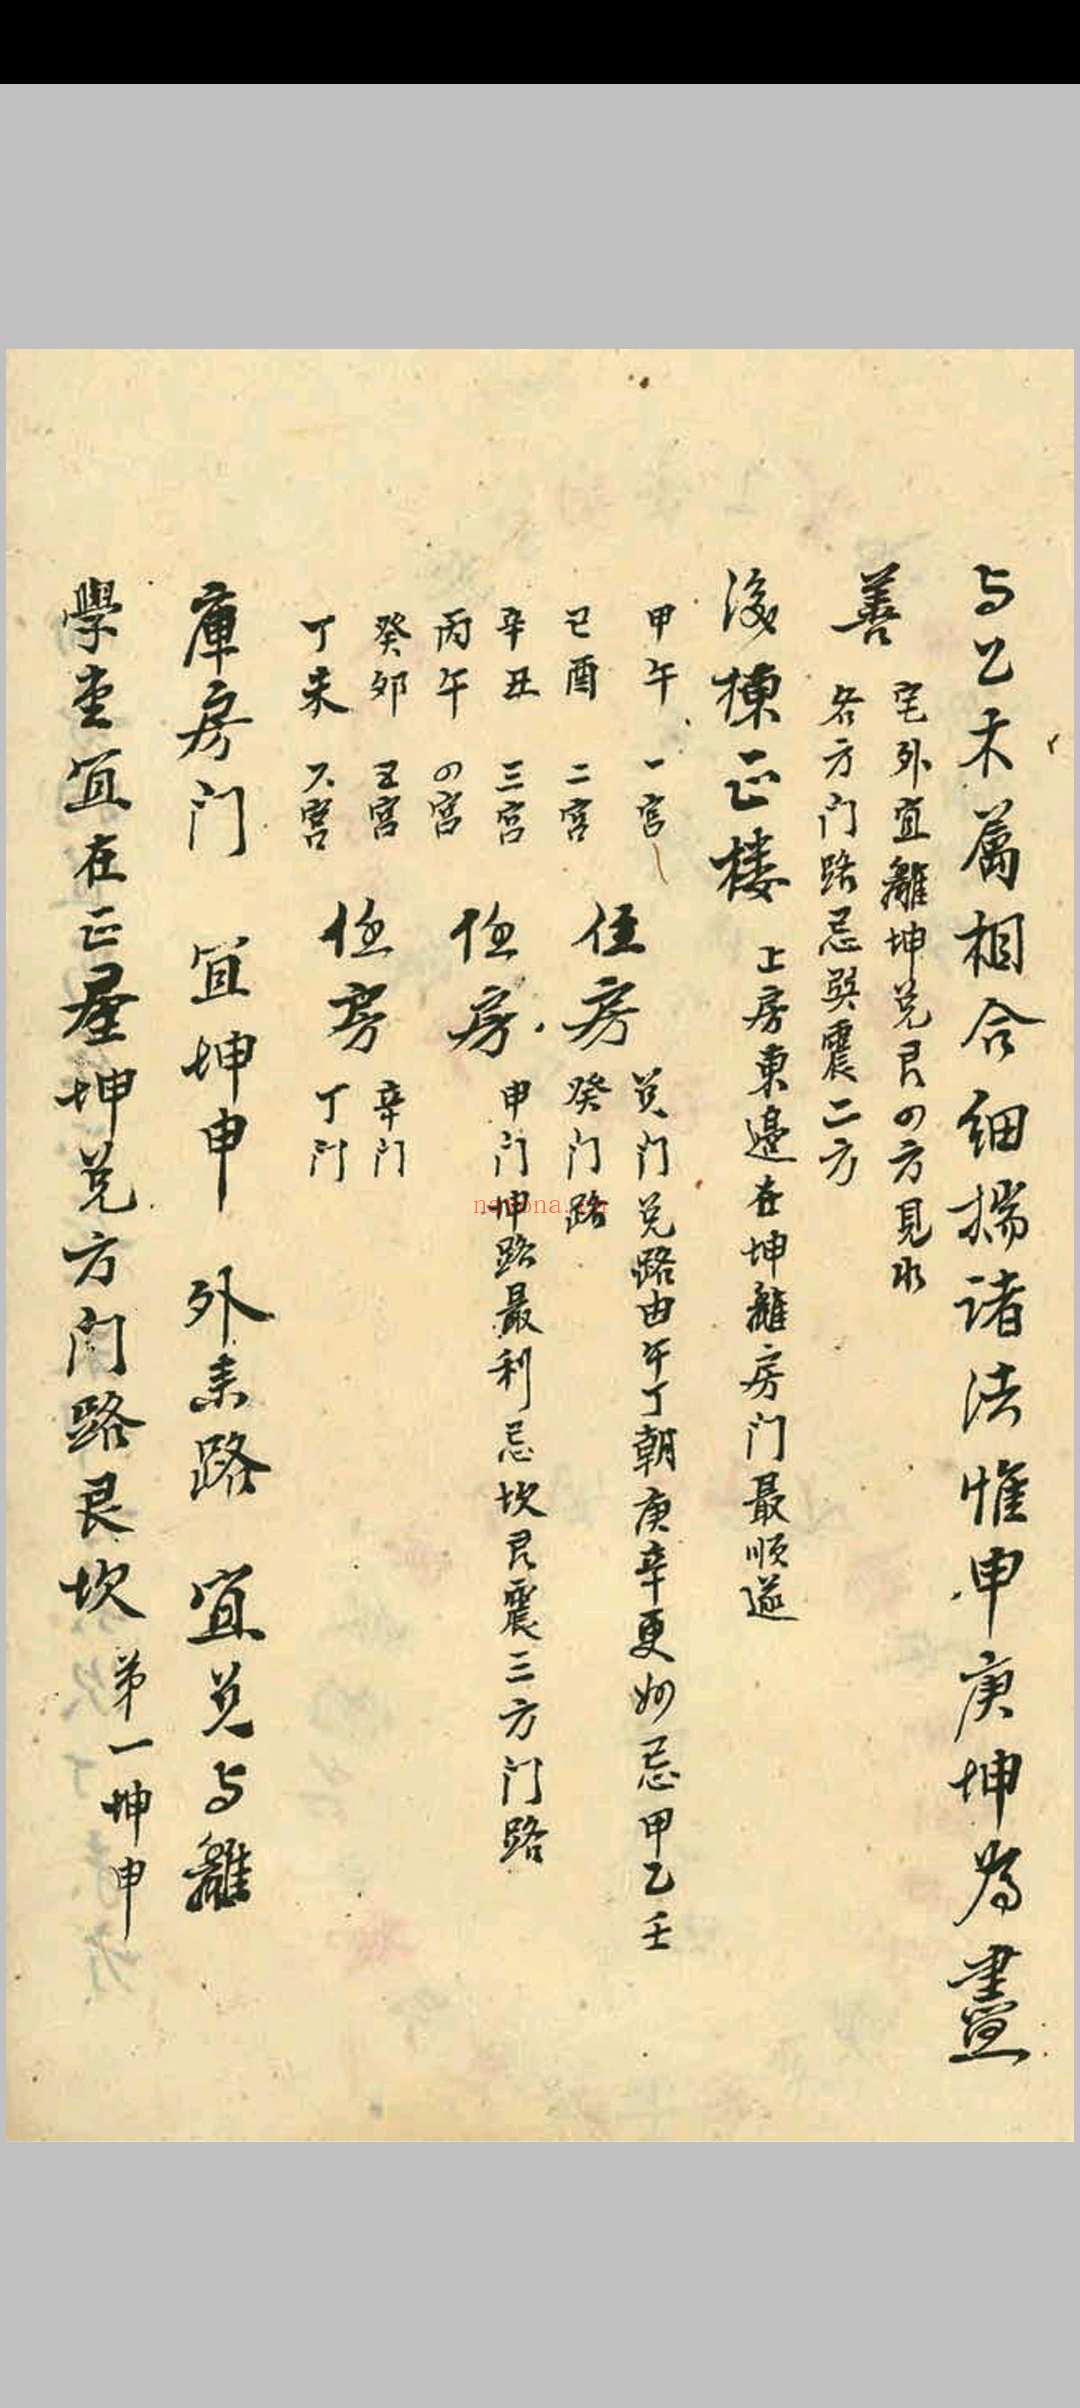 与乙木属相合细揣诸法惟申庚坤为尽
善
宅外宜離坤兑艮四方見水
各方门路忌巽震二方
後棟正楼
上房東邉在坤離房门最順遂
甲午 一宫
己酉 二宫
辛丑 三宫
丙午 四宫
癸卯 五宫
丁未 六宫
住房
兑门兑路由午丁朝庚辛更妙忌甲乙壬
癸门路
住房
申门坤路最利忌坎艮震三方门路
住房
辛门
丁门
庫房门 宜坤申 外来路 宜兑与離
學堂宜在正屋坤兑方门路艮坎
第一坤申